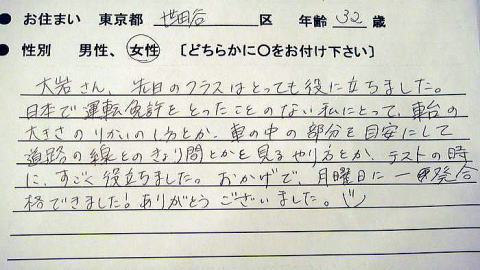 ● お住まい 東京都 世田谷 区 年齢 32 歳
● 性別 男性、女性 〔どちらかに○をお付け下さい〕
大岩さん、先日のクラスはとっても役に立ちました。
日本で運転免許をとったことのない私にとって、車台の
大きさのりかいのし方とか、車の中の部分を目安にして
道路の線とのきょり間とかを見るやり方とか、テストの時
に、すごく役立ちました。おかげで、月曜日に一発合
格できました!ありがとうございました。